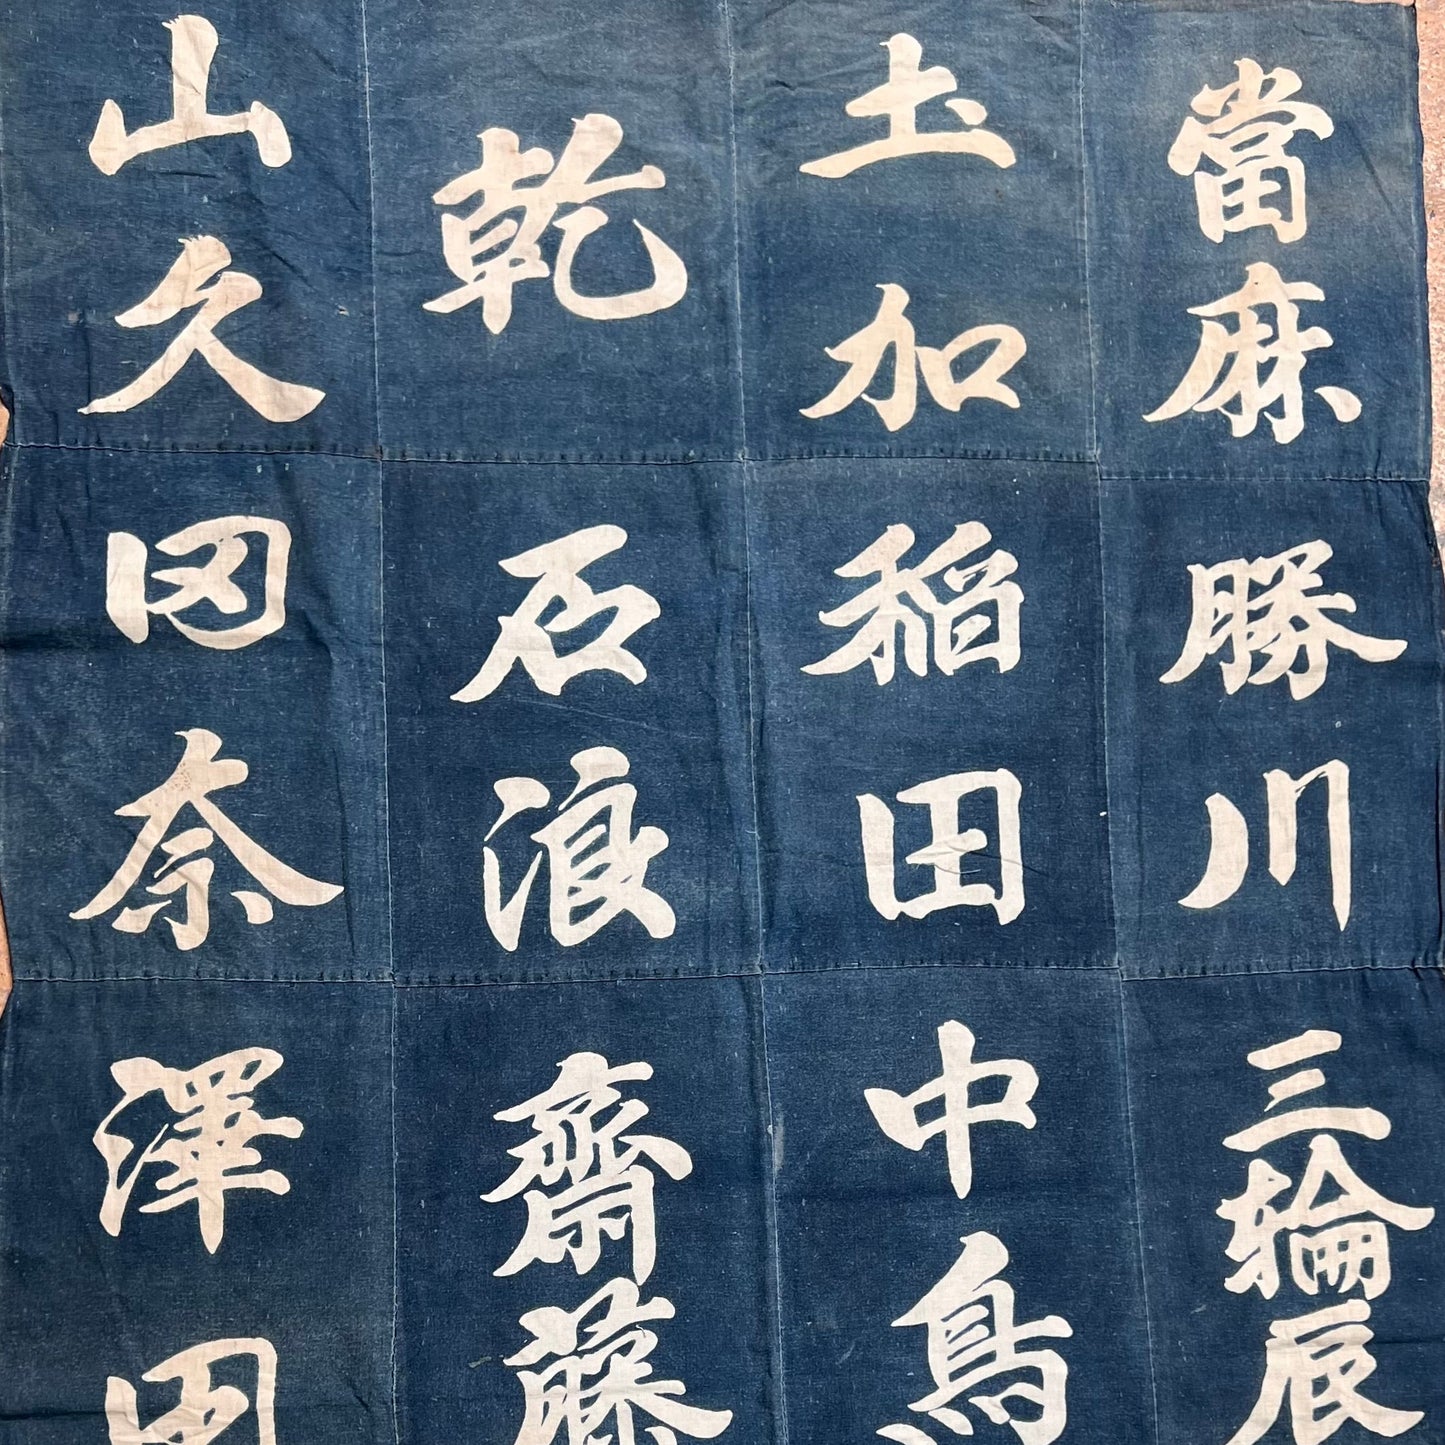 當麻
圡加
乾
山久
勝川
稲田
石浪
冈奈
三輪辰
中鳥
齋藤
澤田